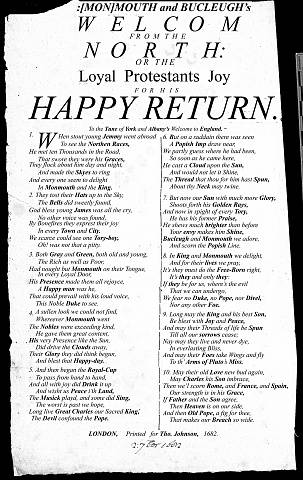 :[MON]MOUTH and BUCLEUGH's
WELCOM
FROM THE
NORTH:
OR THE
Loyal Protestants Joy
FOR HIS
HAPPY RETURN.
To the Tune of York and Albany's Welcome to England.
1. When stout young Jemmy went abroad
To see the Northern Races,
He met ten Thousands in the Road,
That swore they were his Graces,
They flock about him day and night,
And made the Skyes to ring
And every one seem to delight
In Monmouth and the King.
2. They tost their Hats up to the Sky,
The Bells did sweetly found,
God bless young James was all the cry,
No other voice was found,
Sometimes they express their joy
In every Town and City,
We scarce could see one Tory-boy,
Oh! was not that a pitty.
3. Both Gray and Green, both old and young,
The Rich as well as Poor,
Had nought but Monmouth on their Tongue,
in every Loyal Door,
His Presence made them all rejoyce,
A Happy man was he,
That could prevail with his loud voice,
This Noble Duke to see.
4. A sullen look we could not find,
Wheresoever Monmouth went
The Nobles were exceeding kind,
He gave them great content.
His very Presence like the Sun,
Did drive the Clouds away,
Their Glory they did think begun,
And blest that Happy-day.
5. And then began the Royal-Cup
To pass from hand to hand,
And all with joy did Drink it up
And wisht us Peace i'th Land,
The Musick playd, and some did Sing,
The worst is past we hope,
Long live Great Charles our Sacred King,
The Devil confound the Pope.
6. But on a suddain there was seen
A Popish Imp draw near
We partly guess where he had been,
So soon as he came here,
He cast a Cloud upon the Sun,
And would not let it Shine,
The Thread that thou for him hast Spun,
About thy Neck may twine.
7. But now our Sun with much more Glory,
Shoots forth his Golden Rays,
And now in spight of every Tory,
He has his former Praise,
He shines much brighter than before
Your envy makes him Shine,
Bucleugh and Monmouth we adore,
And scorn the Popish Line.
8. In King and Monmouth we delight,
And for their lives we pray,
It's they must do the Free-Born right,
It's they and only they:
If they be for us, where's the evil
That we can undergoe,
We fear no Duke, no Pope, nor Divel,
Nor any other Foe.
9. Long may the King and his best Son,
Be blest with Joy and Peace,
And may their Threads of life be Spun
Till all our sorrows cease;
Nay may they live and never dye,
In everlasting Bliss,
And may their Foes take Wings and fly
To th' Arms of Pluto's Miss.
10. May their old Love new bud again,
May Charles his Son imbrace,
Then we'l scorn Rome, and France, and Spain,
Our strength is in his Grace,
If Father and the Son agree,
Then Heaven is on our side,
And then Old Pope, a fig for thee,
That makes our Breach so wide.
LONDON, Printed for Tho. Johnson, 1682.